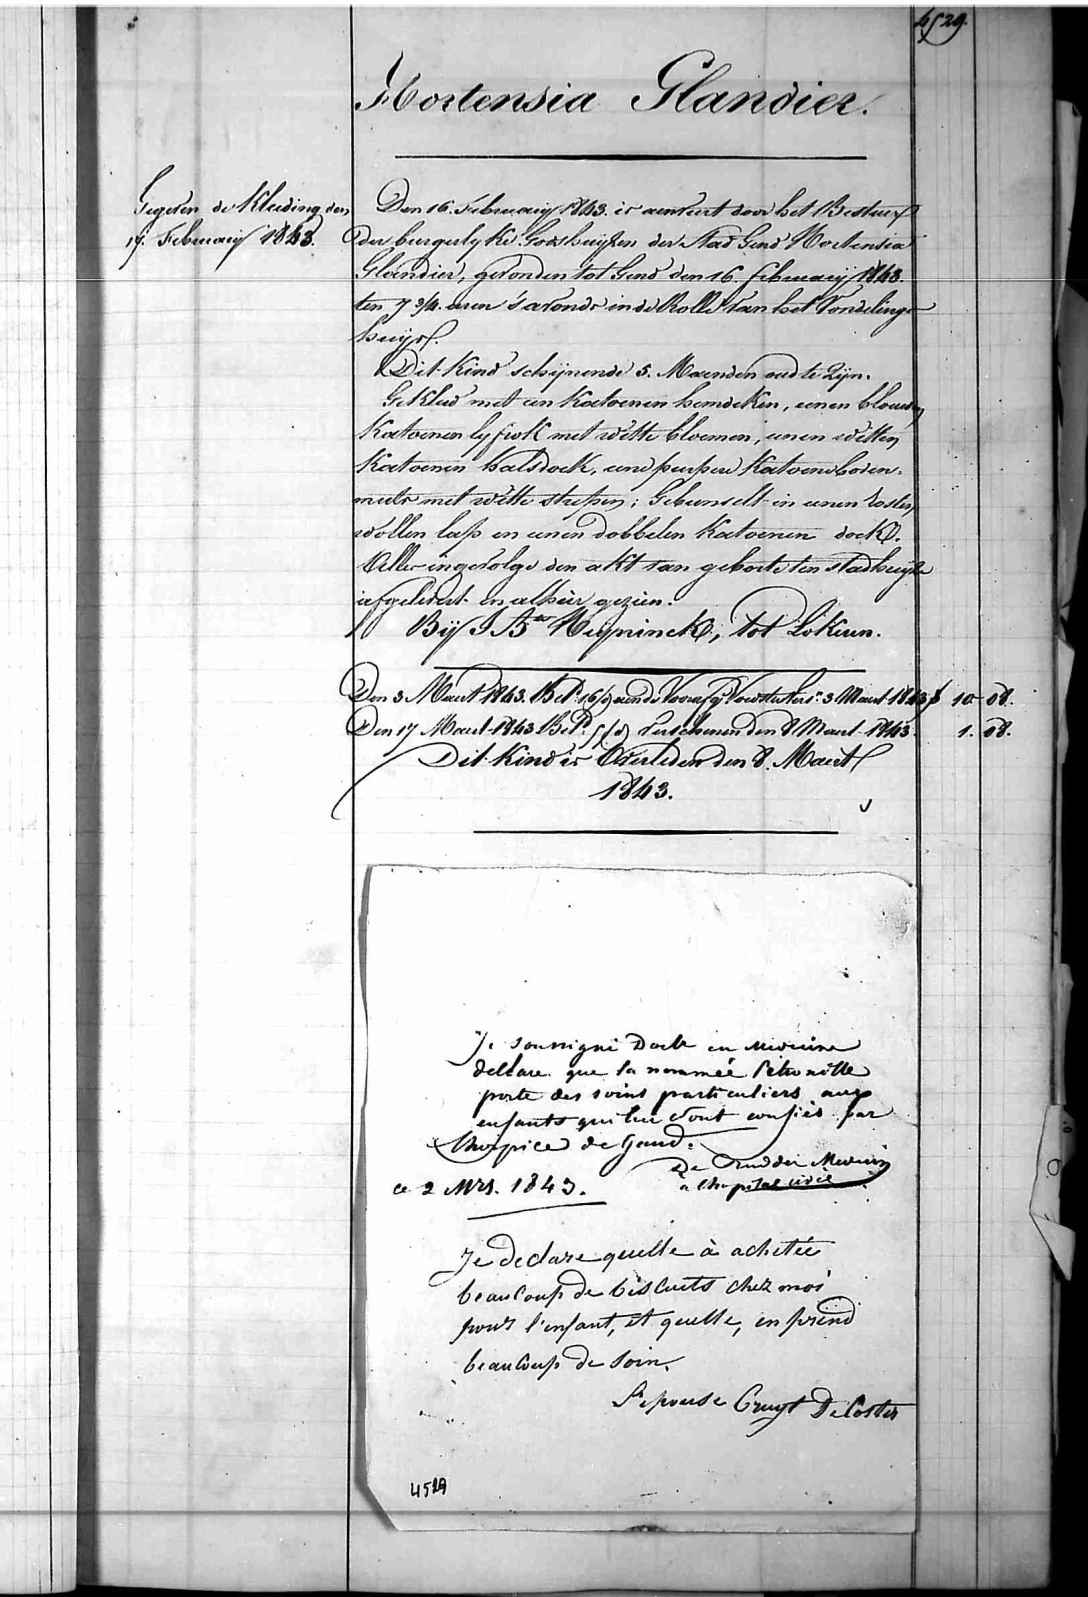 4529.
Hortensia Glandier.
Gegeven de Kleeding den
17. February 1843.
Den 16. February 1843. is aenveert door het Bestuer
der burgerlyke Godshuyzen der Stad Gend Hortensia
Glandier, gevonden tot Gend den 16. february 1843.
ten 7 3/4. uren 's avonds in de Rolle van het Vondelings
huys.
Dit Kind schynende 3. Maenden oud te Zyn.
Gekleed met een Katoenen hemdeken, eenen blauwen
Katoenen lyfrok met witte bloemen, eenen witten
Katoenen halsdoek, eene purpere Katoene boven-
muts met witte strepen; Gebunselt in eenen
wollen lap en eenen dobbelen Katoenen doek.
Alles ingevolge den akt van geboorte ten stadhuyze
afgelevert en alhier gezien.
By J. Bte Heyninck, tot Lokeren.
Den 3 Maert 1843. Betd. 16/ aen de Voedster 3 Maert 1843 f 10-08.
Den 17 Maert 1843 Betd. Verschenen den 8 Maert 1843. 1.08.
Dit Kind is Overleden den 8. Maert
1843.
Je soussigné Doctr en Medicine
declare que la nommée Petronille
porte des soins particuliers aux
enfants qui lui sont confiés par
l'hospice de Gand.
De Rudder Medecin
ce 2 Mrs. 1843. à l'hopital civil
Je declare quelle à achetée
beaucoup de biscuits chez moi
pour l'enfant, et quelle, en prend
beaucoup de soin.
L'epouse Cruyt DeCoster
4529